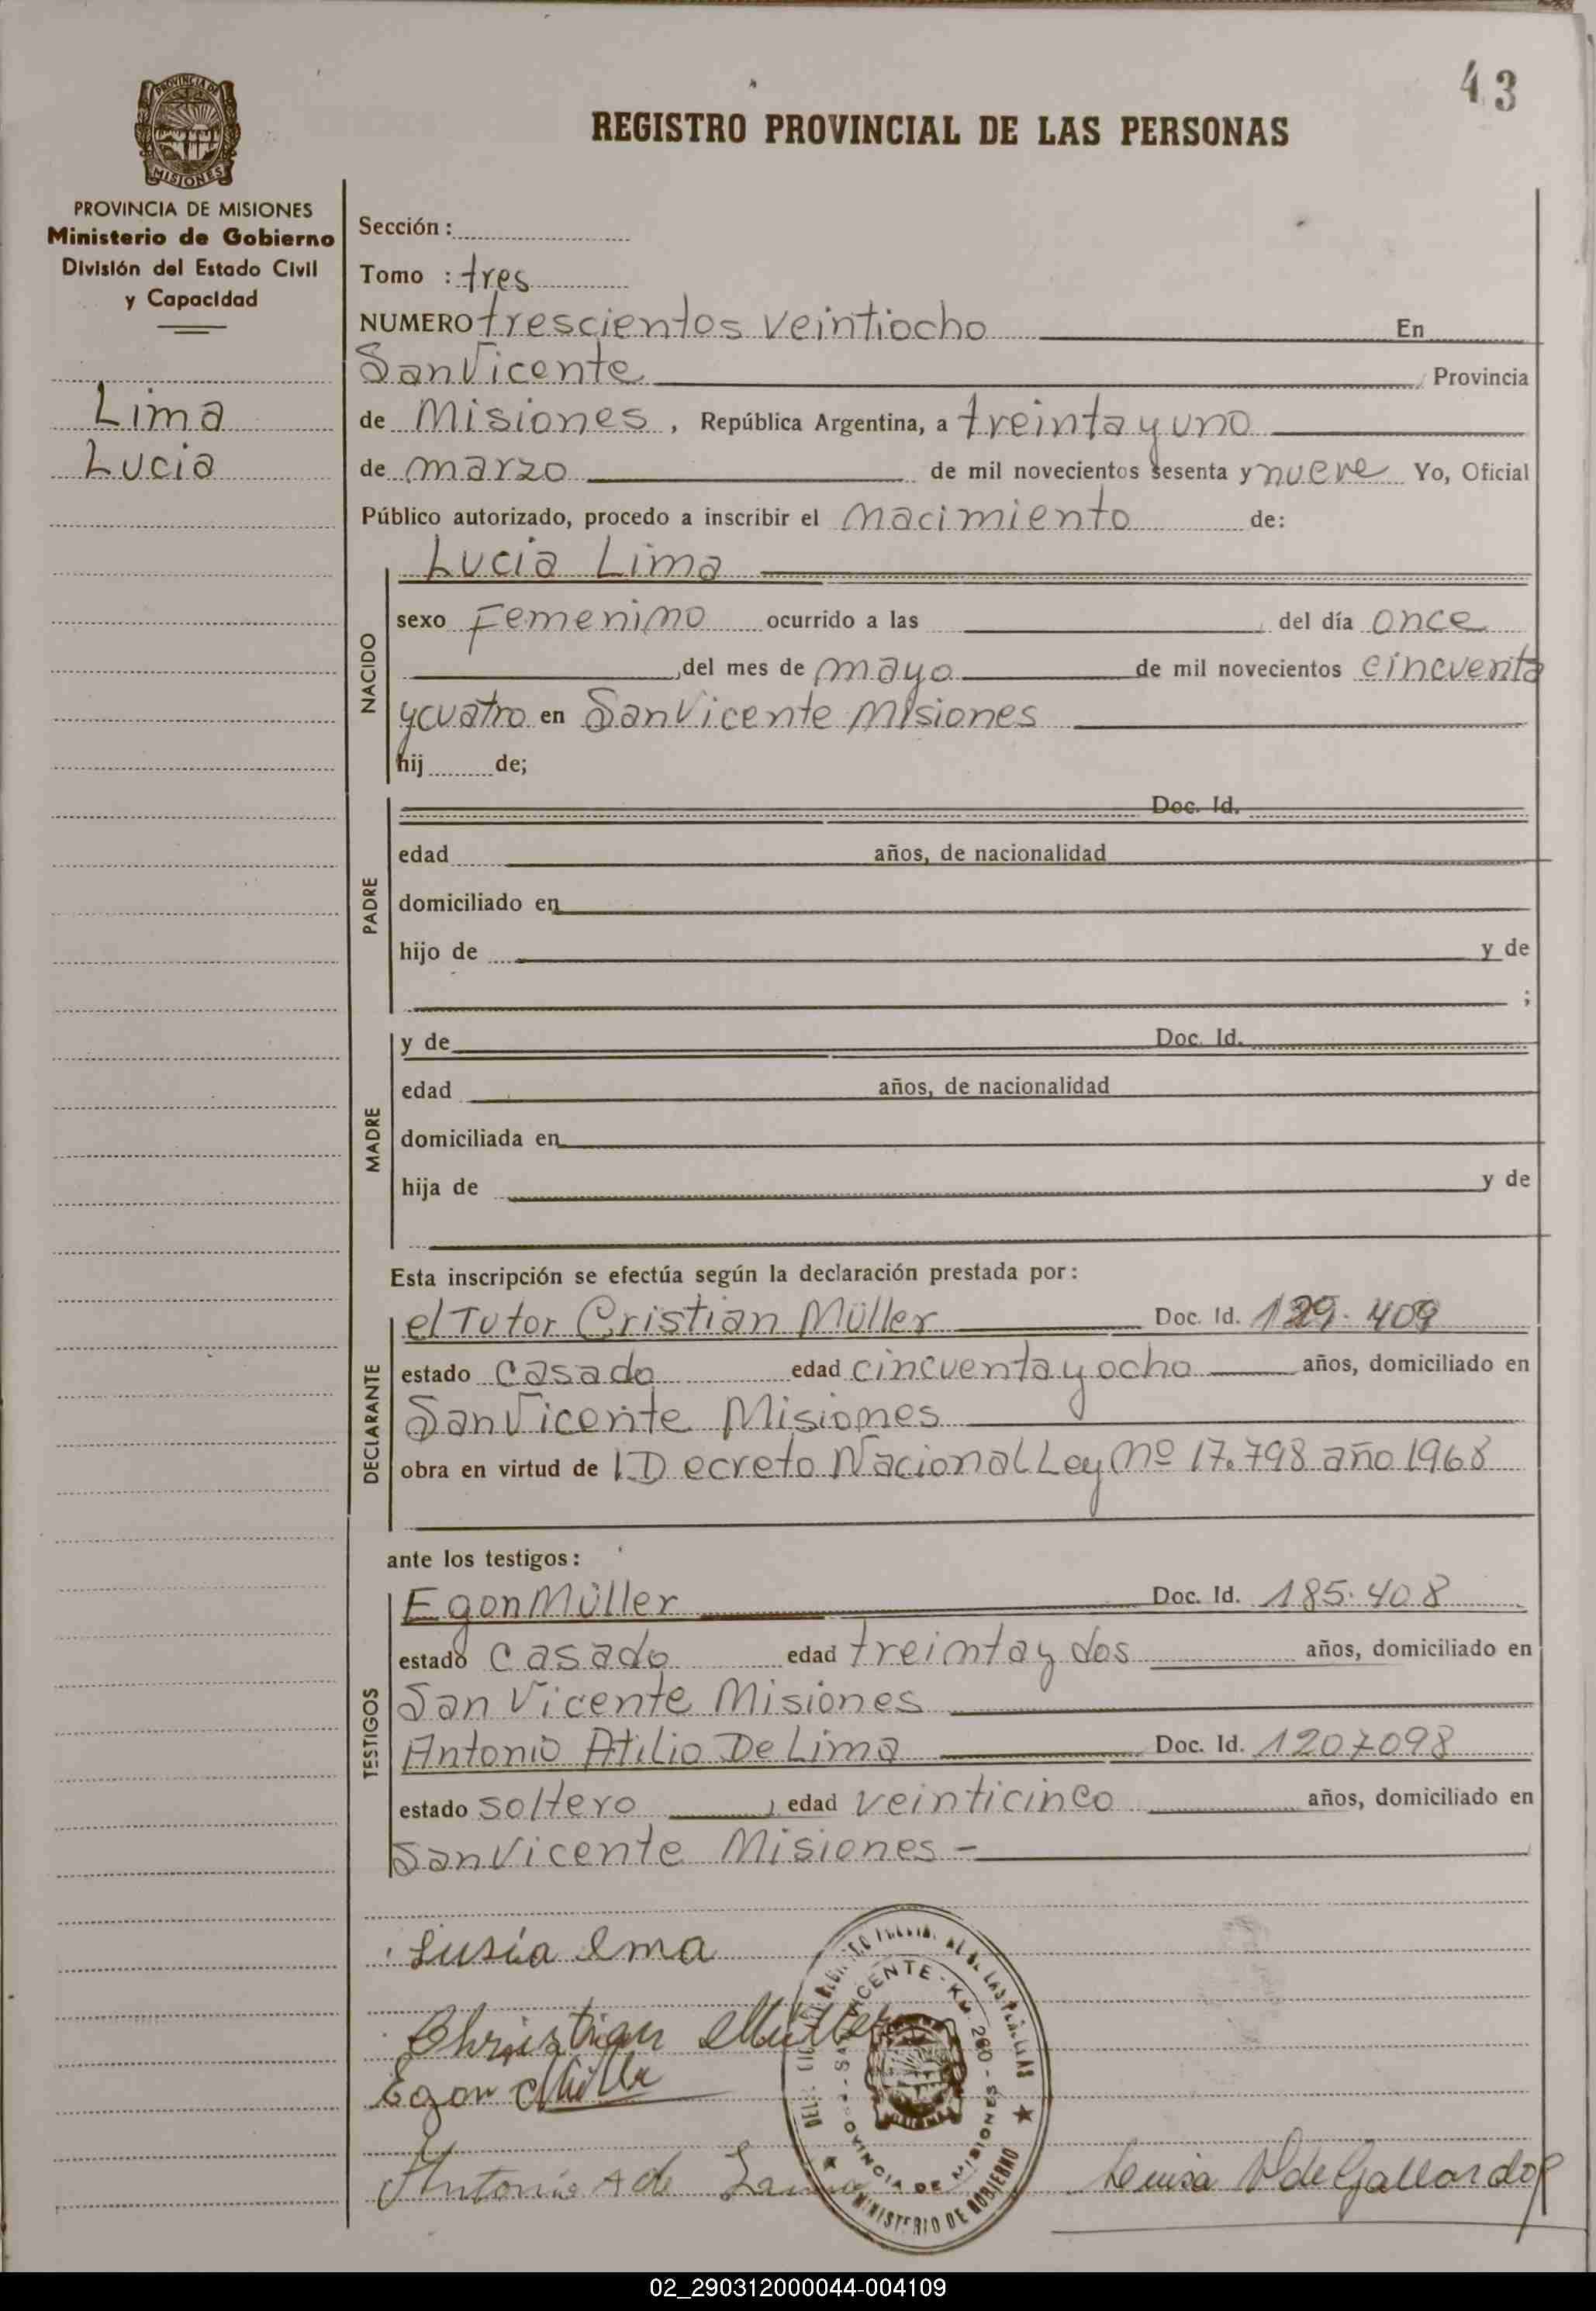 43
REGISTRO PROVINCIAL DE LAS PERSONAS
PROVINCIA DE
MISIONES
PROVINCIA DE MISIONES
Ministerio de Gobierno
División del Estado Civil
y Capacidad
Lima
Lucia
Sección :
Tomo : tres
NUMERO trescientos veintiocho En
San Vicente , Provincia
de Misiones , República Argentina, a treinta y uno
de marzo de mil novecientos sesenta y nueve Yo, Oficial
Público autorizado, procedo a inscribir el nacimiento de:
NACIDO
Lucia Lima
sexo Femenino ocurrido a las , del día once
,del mes de mayo de mil novecientos cincuenta
y cuatro en San Vicente Misiones
hij de;
PADRE
Doc. Id.
edad años, de nacionalidad
domiciliado en
hijo de y de
;
MADRE
y de Doc. Id.
edad años, de nacionalidad
domiciliada en
hija de y de
Esta inscripción se efectúa según la declaración prestada por :
DECLARANTE
el Tutor Cristian Müller Doc. Id. 409
estado casado edad cincuenta y ocho años, domiciliado en
San Vicente Misiones
obra en virtud de l Decreto Nacional Ley Nº 17.798 año 1968
ante los testigos :
TESTIGOS
Egon Müller Doc. Id. 185.408
estado casado edad treinta y dos años, domiciliado en
San Vicente Misiones
Antonio Atilio De Lima Doc. Id. 1207098
estado soltero , edad veinticinco años, domiciliado en
San Vicente Misiones -
Lusía Lma
Christian Müller
Egon Müller
Antonio A de Lima
Luisa V de Gallardo
VICENTE - KM. 260 - MISIONES
PROVINCIA DE MISIONES
MINISTERIO DE GOBIERNO
02_290312000044-004109